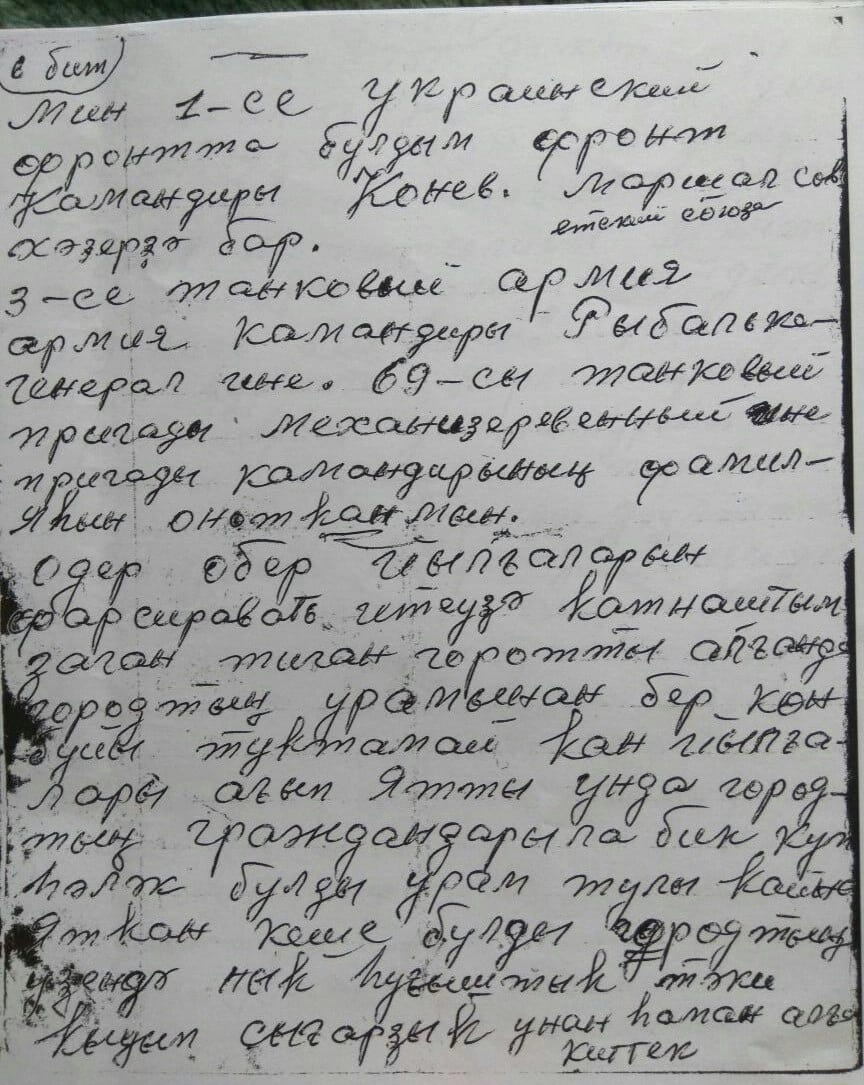 6 бит
Мин 1-се украинский
фронтта булдым фронт
Командиры Конев. Маршал сов
етский союза
хәзерҙә бар.
3-се танковый армия
армия командиры Рыбалька-
генерал ине. 69-сы танковый
пригады механизеревенный ине
пригады командирының фамил-
Яһын онотканмын.
Одер обер йылғаларын
фарсировать итеүҙә катнаштым
заган тиган горотты алғанда
городтың урамынан бер көн
буйы туктамай кан йылға-
лары ағып Ятты унда город-
тың граждандары ла бик күп
һәләк булды урам тулы
Яткан кеше булды городтың
үзендә ник һуғыштык тәки
кыуып сығарҙык унан һаман алға
киттек